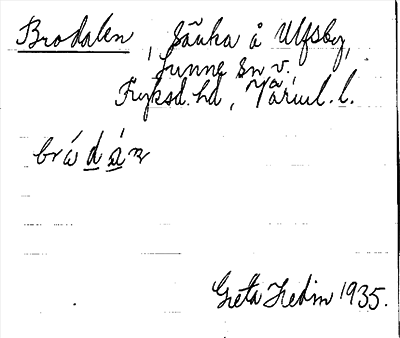 Brodalen, Sänka å Ulfsby,
Sunne sn v.
Fryksd. hd, Värml. l.
bródán
Greta Hedin 1935.